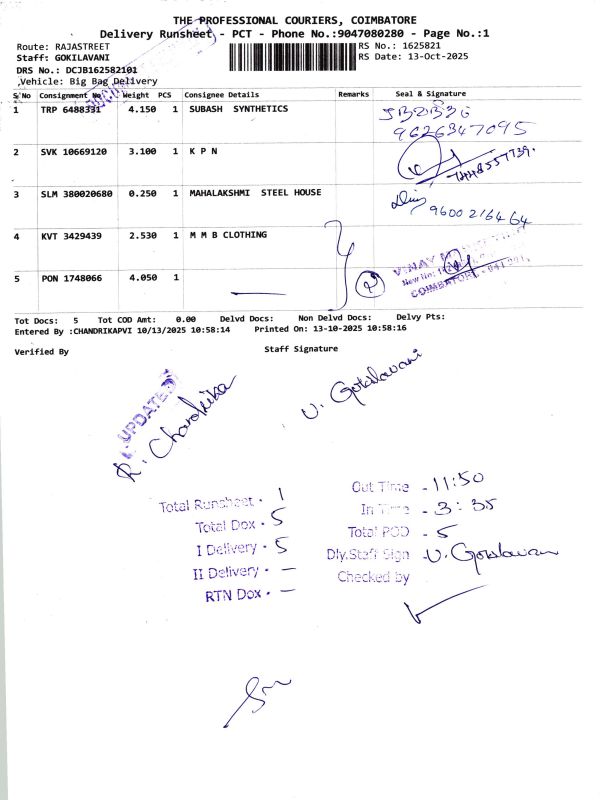 THE PROFESSIONAL COURIERS, COIMBATORE
Delivery Runsheet - PCT - Phone No.:9047080280 - Page No.:1
Route: RAJASTREET
RS No.: 1625821
Staff: GOKILAVANI
RS Date: 13-Oct-2025
DRS No.: DCJB162582101
Vehicle: Big Bag Delivery
S No Consignment No Weight PCS Consignee Details Remarks Seal & Signature
1 TRP 6488331 4.150 1 SUBASH SYNTHETICS
9626347095
2 SVK 10669120 3.100 1 K P N
3 SLM 380020680 0.250 1 MAHALAKSHMI STEEL HOUSE
9600216464
4 KVT 3429439 2.530 1 M M B CLOTHING
VINAY
COIMBATORE
5 PON 1748066 4.050 1
Tot Docs: 5 Tot COD Amt: 0.00 Delvd Docs: Non Delvd Docs: Delvy Pts:
Entered By :CHANDRIKAPVI 10/13/2025 10:58:14 Printed On: 13-10-2025 10:58:16
Verified By Staff Signature
UPDATED
R. Chandrika
V. Gokilavani
Total Runsheet - 1
Total Dox - 5
I Delivery - 5
II Delivery - —
RTN Dox - —
Out Time - 11:50
In Time - 3:35
Total POD - 5
Dly.Staff Sign - V. Gokilavani
Checked by